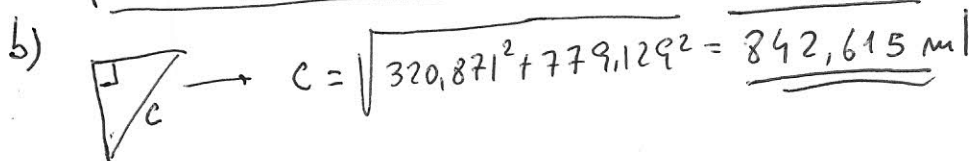 b) c → c = √320,871² + 779,129² = 842,615 ml